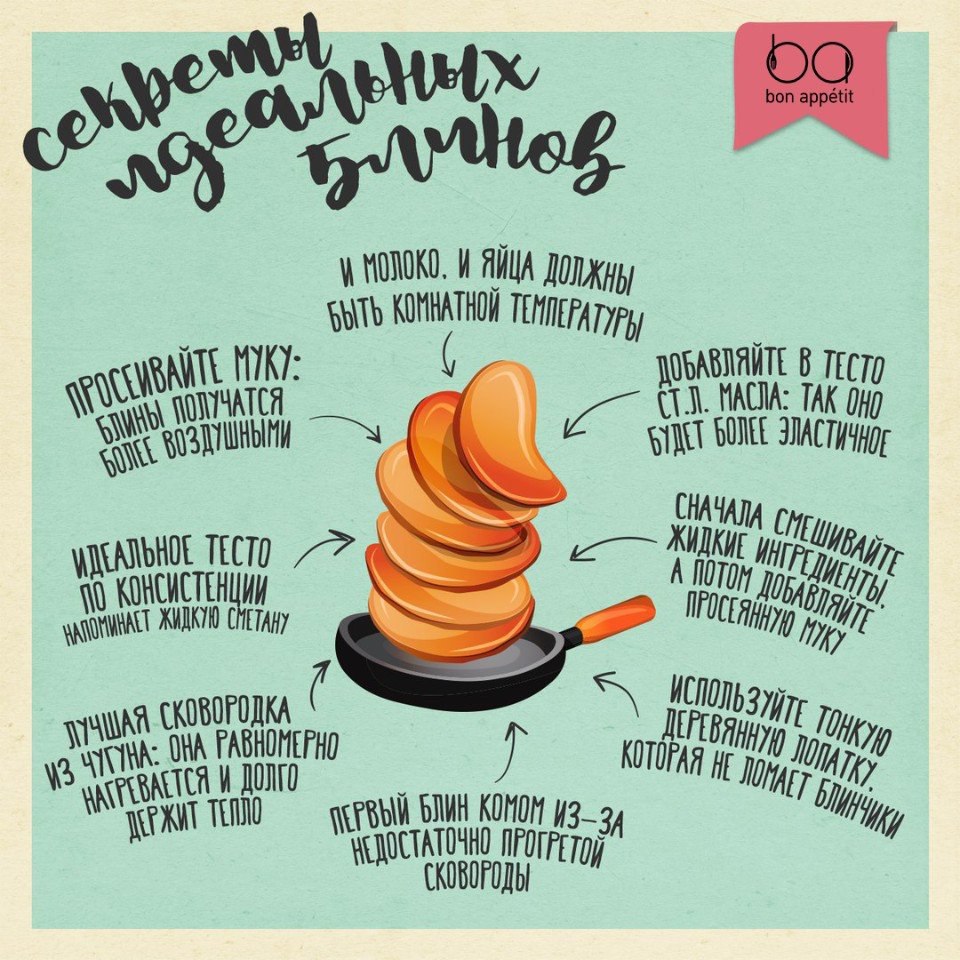 секреты
идеальных
блинов
ba
bon appétit
И МОЛОКО, И ЯЙЦА ДОЛЖНЫ
БЫТЬ КОМНАТНОЙ ТЕМПЕРАТУРЫ
ПРОСЕИВАЙТЕ МУКУ:
БЛИНЫ ПОЛУЧАТСЯ
БОЛЕЕ ВОЗДУШНЫМИ
ДОБАВЛЯЙТЕ В ТЕСТО
СТ.Л. МАСЛА: ТАК ОНО
БУДЕТ БОЛЕЕ ЭЛАСТИЧНОЕ
ИДЕАЛЬНОЕ ТЕСТО
ПО КОНСИСТЕНЦИИ
НАПОМИНАЕТ ЖИДКУЮ СМЕТАНУ
СНАЧАЛА СМЕШИВАЙТЕ
ЖИДКИЕ ИНГРЕДИЕНТЫ,
А ПОТОМ ДОБАВЛЯЙТЕ
ПРОСЕЯННУЮ МУКУ
ЛУЧШАЯ СКОВОРОДКА
ИЗ ЧУГУНА: ОНА РАВНОМЕРНО
НАГРЕВАЕТСЯ И ДОЛГО
ДЕРЖИТ ТЕПЛО
ИСПОЛЬЗУЙТЕ ТОНКУЮ
ДЕРЕВЯННУЮ ЛОПАТКУ,
КОТОРАЯ НЕ ЛОМАЕТ БЛИНЧИКИ
ПЕРВЫЙ БЛИН КОМОМ ИЗ-ЗА
НЕДОСТАТОЧНО ПРОГРЕТОЙ
СКОВОРОДЫ